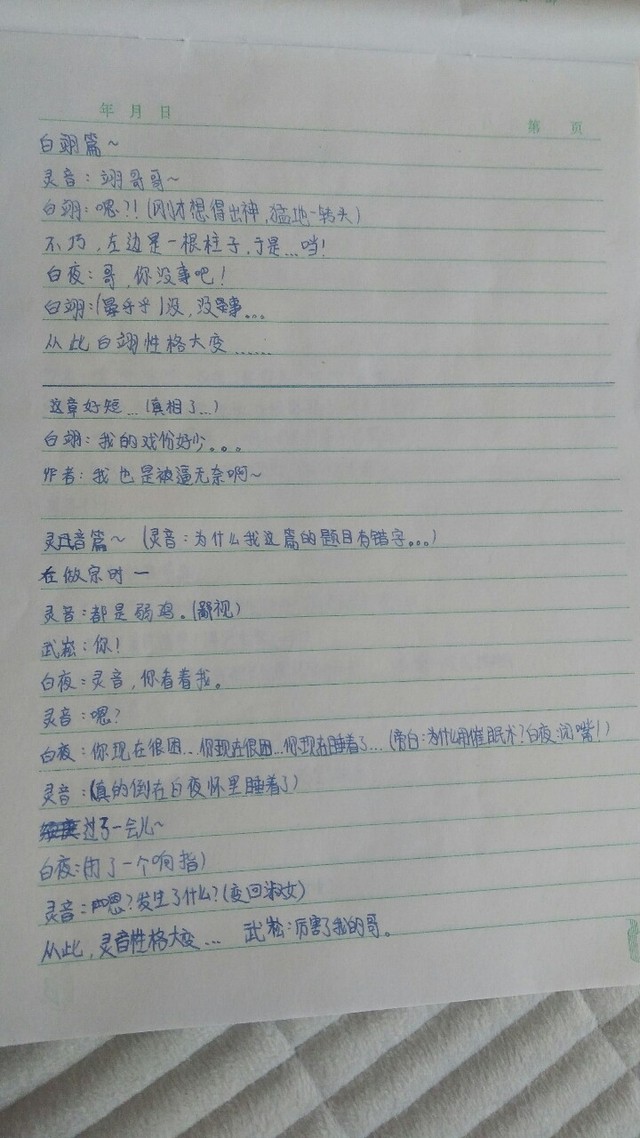 年 月 日
第 页
白翊篇~
灵音：翊哥哥~
白翊：嗯?!(刚才想得出神,猛地一转头)
不巧,左边是一根柱子,于是...当!
白夜：哥,你没事吧!
白翊:(晕乎乎)没,没事...
从此白翊性格大变......
这章好短...(真相了...)
白翊：我的戏份好少。。。
作者：我也是被逼无奈啊~
灵音篇~ (灵音：为什么我这篇的题目有错字。。。)
在做宗时一
灵音：都是弱鸡。(鄙视)
武崧：你!
白夜：灵音,你看着我。
灵音：嗯?
白夜：你现在很困...你现在很困...你现在睡着了...(旁白:为什么用催眠术?白夜:闭嘴!)
灵音：(真的倒在白夜怀里睡着了)
过了一会儿~
白夜:(打了一个响指)
灵音：嗯?发生了什么?(变回淑女)
从此,灵音性格大变... 武崧:厉害了我的哥。